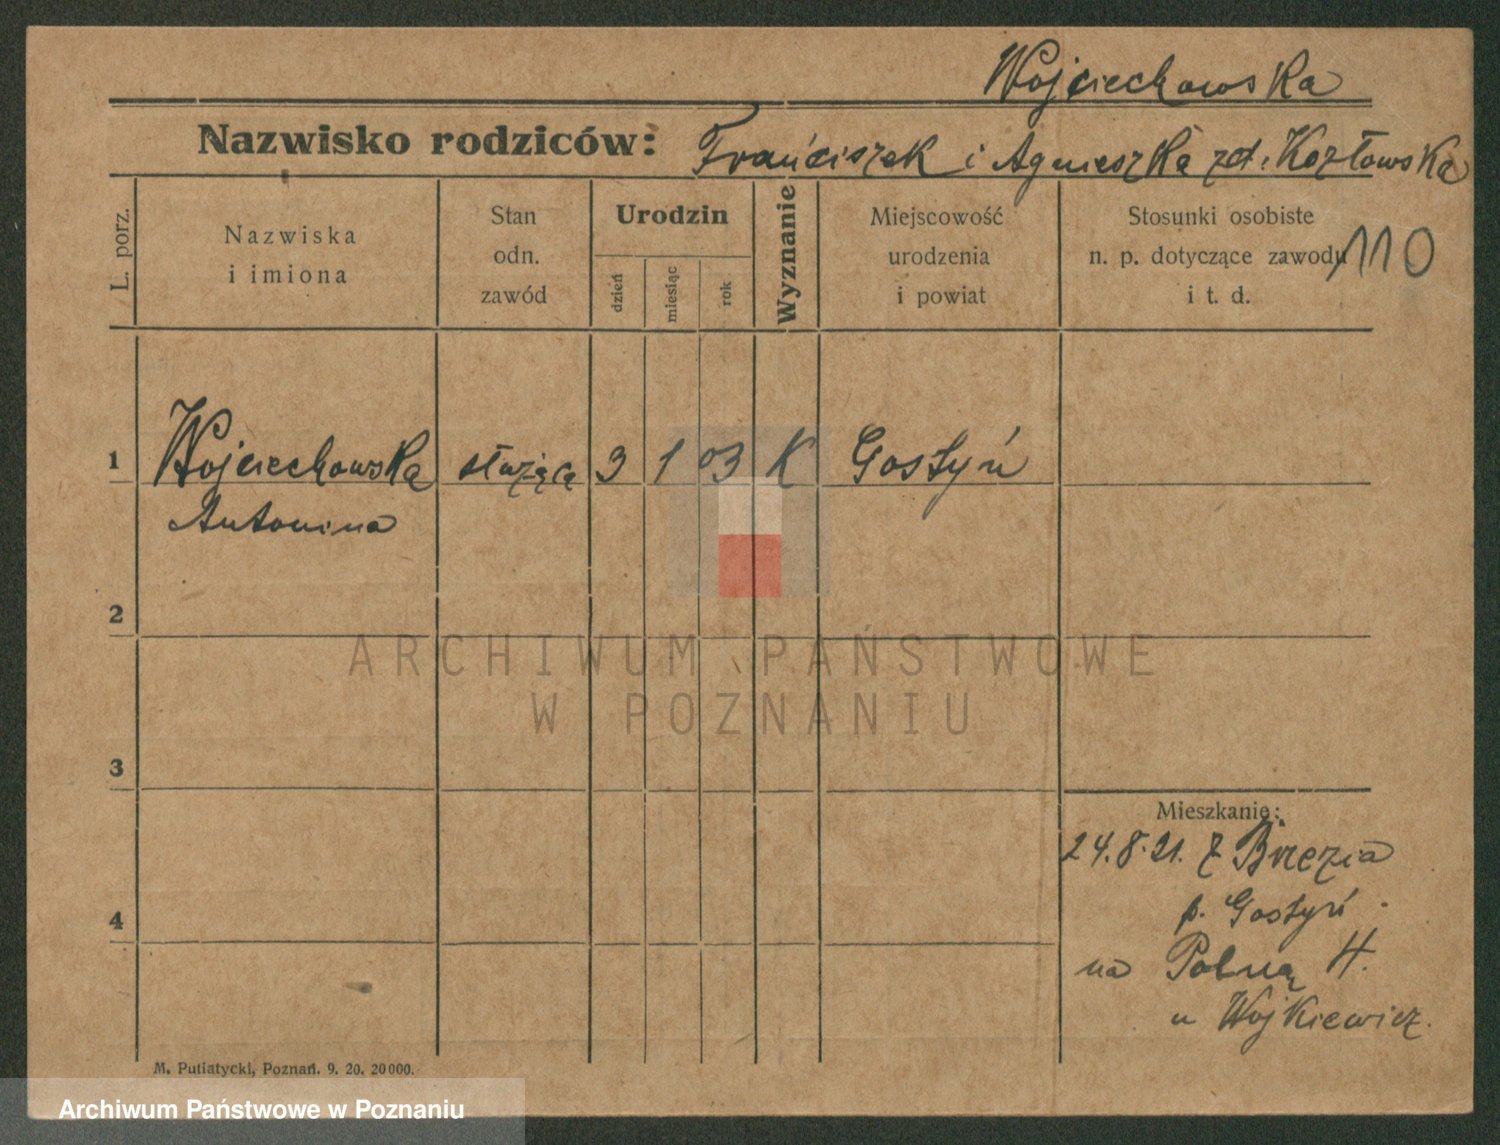 Wojciechowska
Nazwisko rodziców: Franciszek i Agnieszka zd. Kozłowska
L. porz.
Nazwiska
i imiona
Stan
odn.
zawód
Urodzin
dzień
miesiąc
rok
Wyznanie
Miejscowość
urodzenia
i powiat
Stosunki osobiste
n. p. dotyczące zawodu
i t. d.
110
1 Wojciechowska służąca 3 1 03 K Gostyń
Antonina
2
3
4
Mieszkanie:
24.8.21. z Brezia
p. Gostyń
na Polną
u Wojkiewicz.
M. Putiatycki, Poznań. 9. 20. 20000.
ARCHIWUM PAŃSTWOWE
W POZNANIU
Archiwum Państwowe w Poznaniu